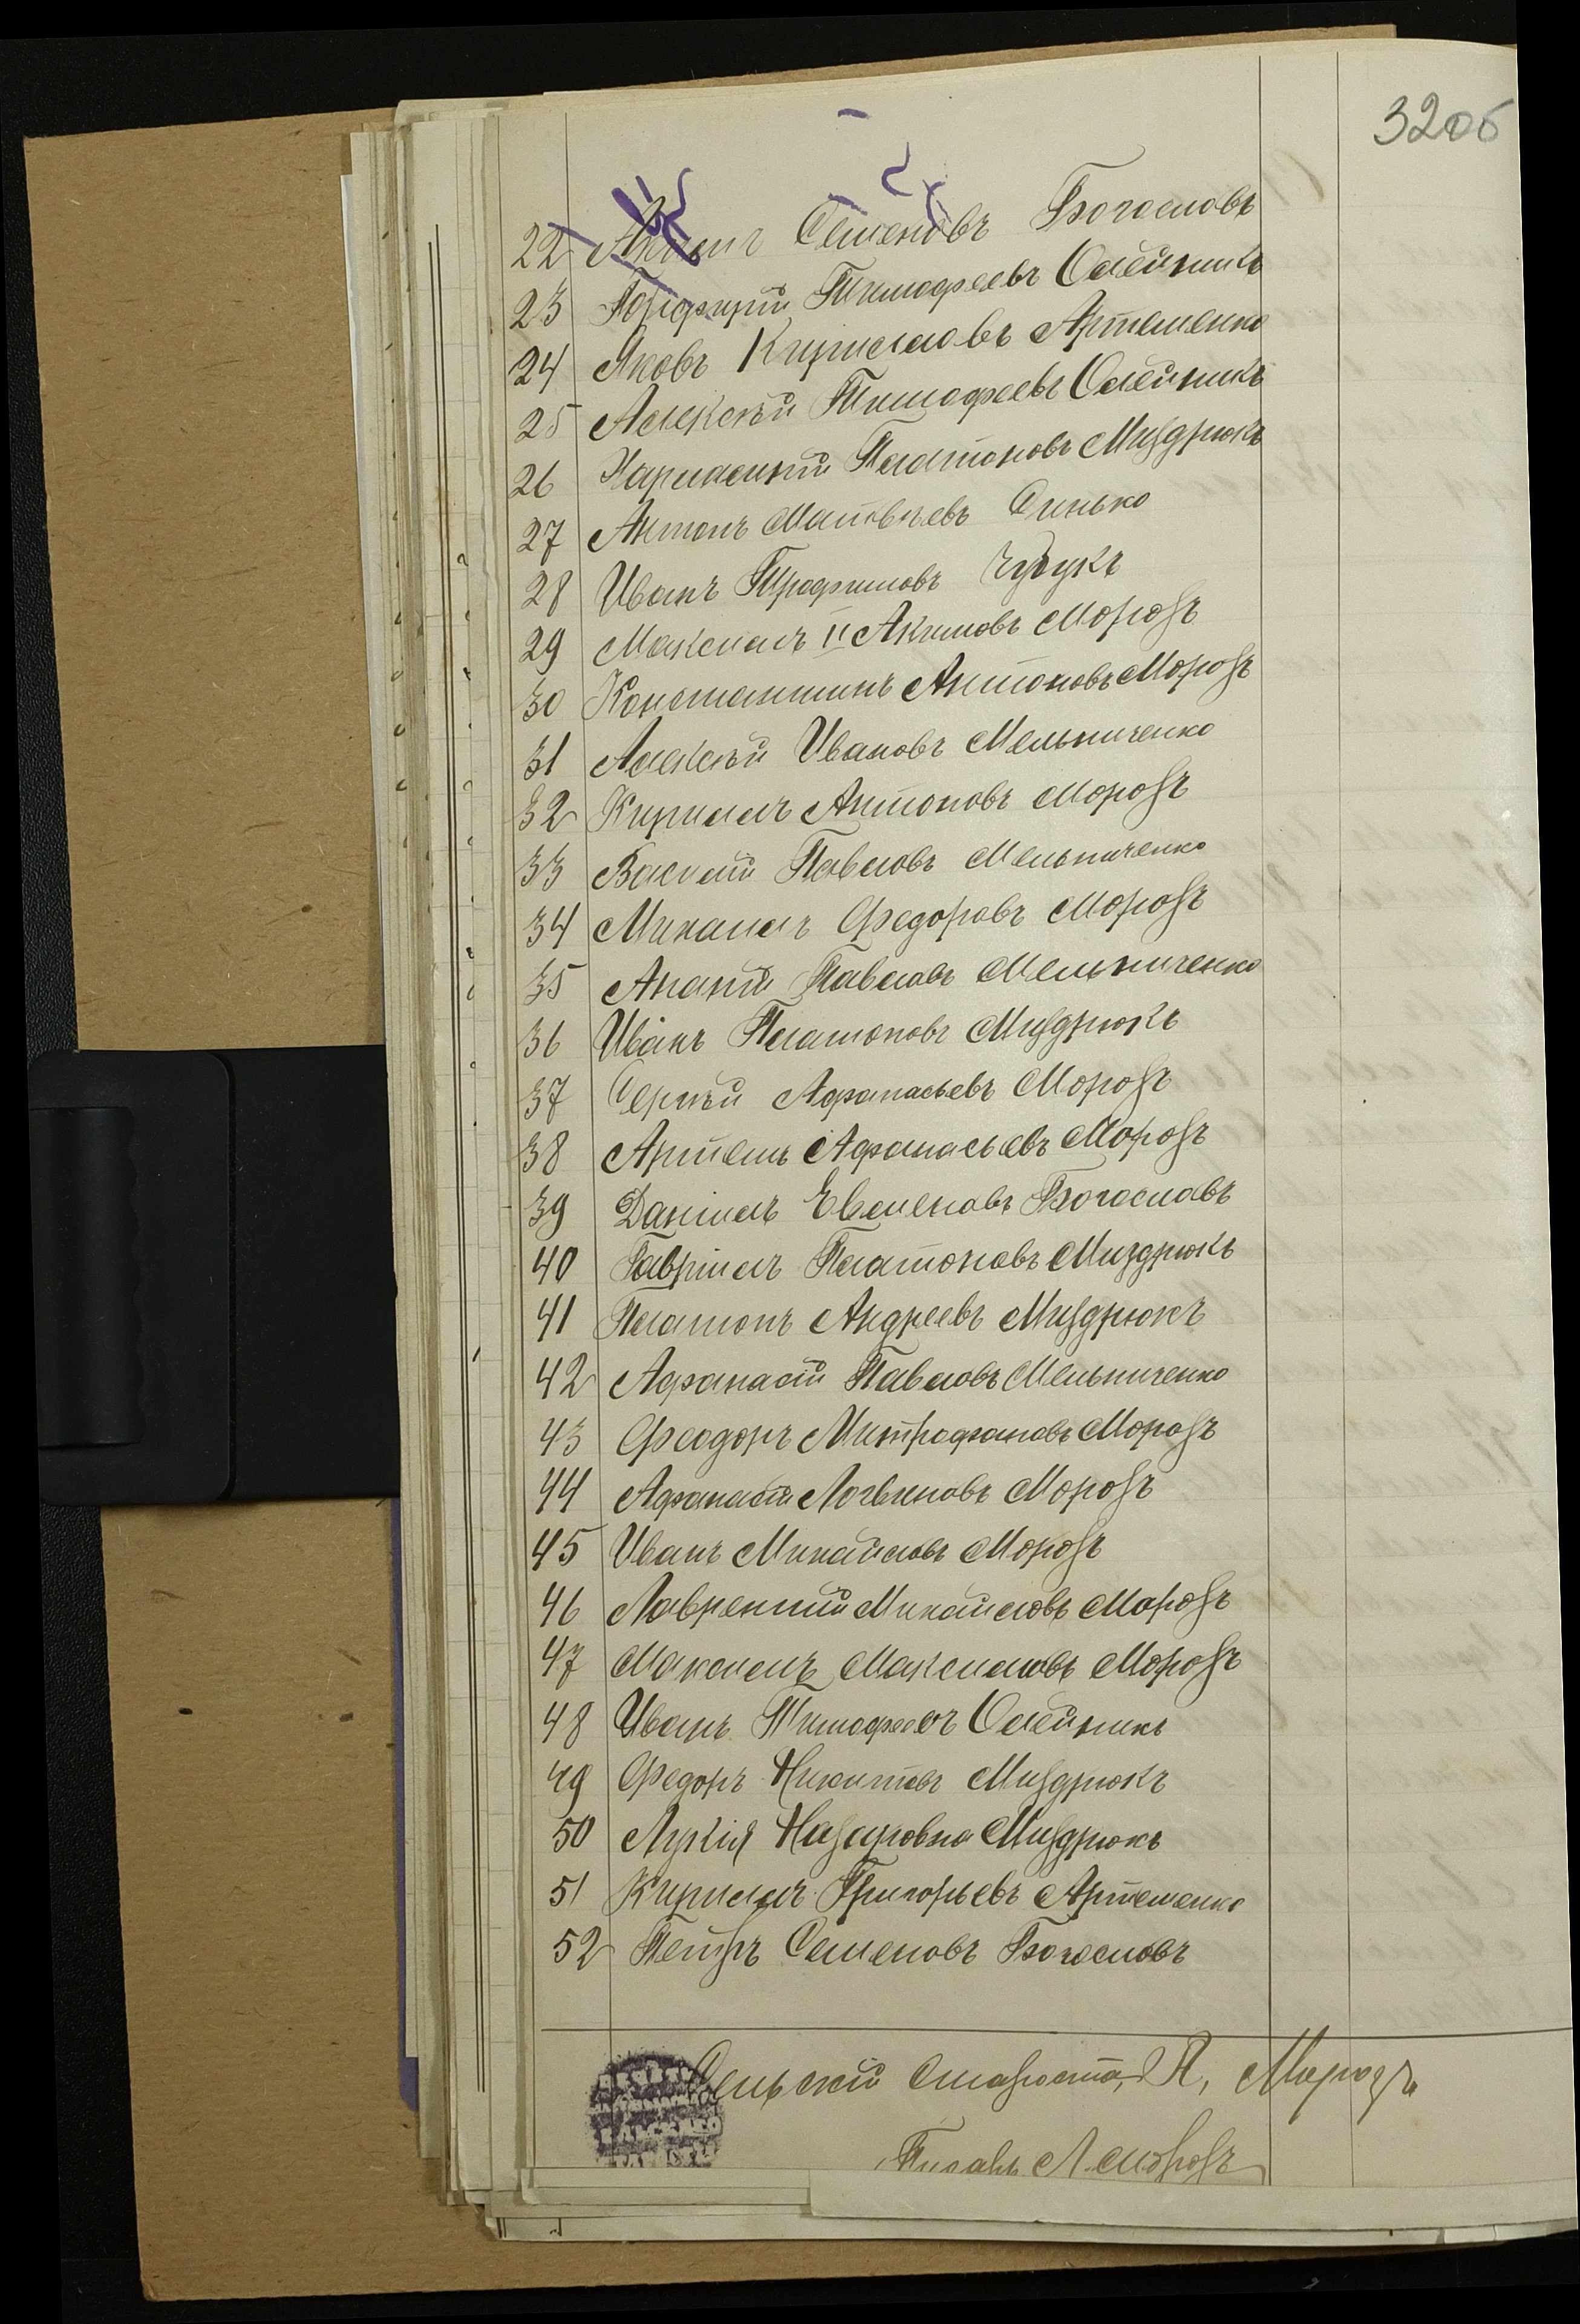 32об
22 Акимъ Семеновъ Богословъ
23 Порфирій Тимофеевъ Олейникъ
24 Яковъ Кирилловъ Артеменко
25 Алексѣй Тимофеевъ Олейникъ
26 Харлампій Платоновъ Миздрюкъ
27 Антонъ Матвѣевъ Синько
28 Иванъ Трофимовъ
29 Максимъ II Акимовъ Морозъ
30 Константинъ Антоновъ Морозъ
31 Алексѣй Ивановъ Мельниченко
32 Кириллъ Антоновъ Морозъ
33 Василій Павловъ Мельниченко
34 Михаилъ Федоровъ Морозъ
35 Ананій Павловъ Мельниченко
36 Иванъ Платоновъ Миздрюкъ
37 Сергѣй Афанасьевъ Морозъ
38 Артемъ Афанасьевъ Морозъ
39 Даніилъ Евменовъ Богословъ
40 Гавріилъ Платоновъ Миздрюкъ
41 Платонъ Андреевъ Миздрюкъ
42 Афанасій Павловъ Мельниченко
43 Феодоръ Митрофановъ Морозъ
44 Афанасій Логвиновъ Морозъ
45 Иванъ Михайловъ Морозъ
46 Лаврентій Михайловъ Морозъ
47 Максимъ Максимовъ Морозъ
48 Иванъ Тимофеевъ Олейникъ
49 Федоръ Никитовъ Миздрюкъ
50 Лукія Назаровна Миздрюкъ
51 Кириллъ Григорьевъ Артеменко
52 Петръ Семеновъ Богословъ
Сельскій Староста, Я, Морозъ
Писарь А. Морозъ